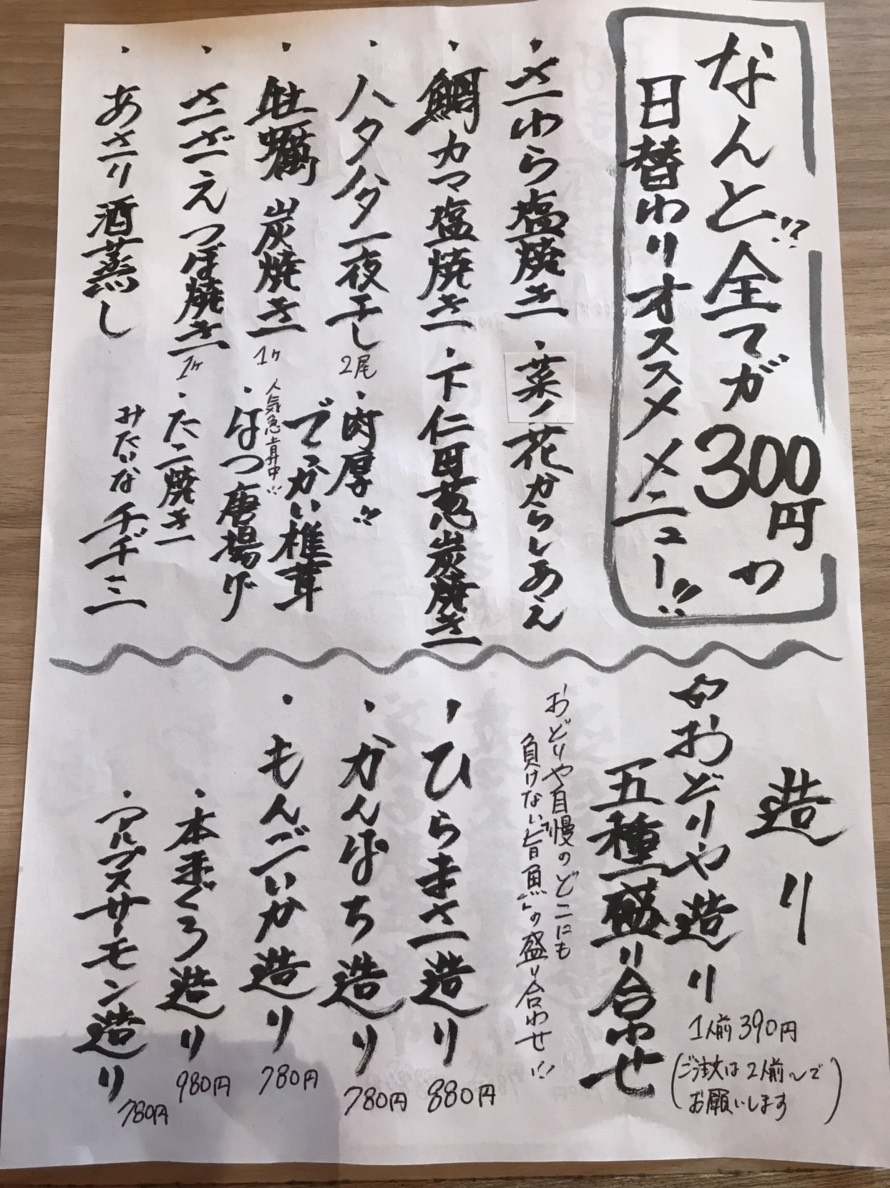 なんと!!全てガ300円の
日替わりオススメメニュー!!
・さわら塩焼き
・菜ノ花からしあえ
・鯛カマ塩焼き
・下仁田葱炭焼き
・ハタハタ一夜干し 2尾
・肉厚!!
でっかい椎茸
・牡蠣炭焼き 1ヶ
人気急上昇中!!
・はつ唐揚げ
・さざえつぼ焼き 1ヶ
・たこ焼き
みたいなチヂミ
・あさり酒蒸し
造り
おどりや造り
五種盛り合わせ
1人前390円
(ご注文は2人前〜で
お願いします)
おどりや自慢のどこにも
負けない「旨魚」の盛り合わせ!!
・ひらまさ造り 880円
・かんぱち造り 780円
・もんごいか造り 780円
・本まぐろ造り 980円
・アルプスサーモン造り 780円